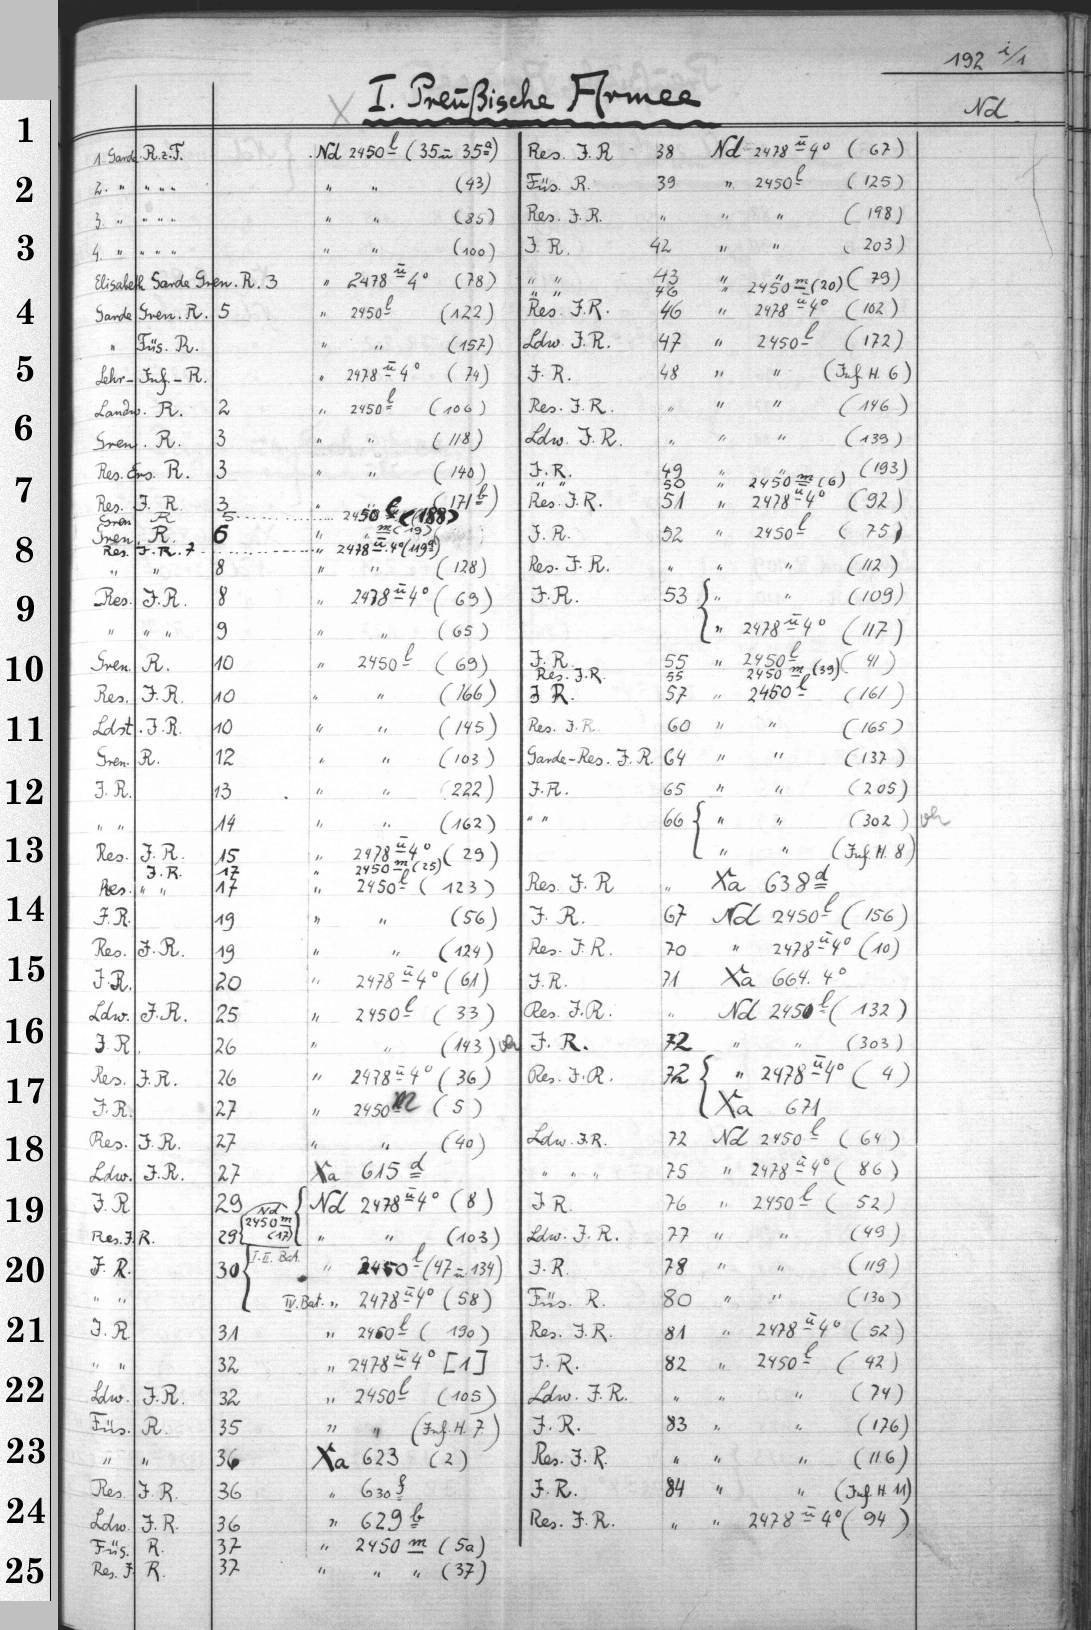 192 i/1
I. Preußische Armee
Nd
1. Garde R.z.F. Nd 2450 l (35 u 35a)
2. " " " " " " (43)
3. " " " " " " (85)
4. " " " " " " (100)
Elisabeth Garde Gren. R. 3 " 2478 u 4° (78)
Garde Gren. R. 5 " 2450 l (122)
" Füs. R. " " (157)
Lehr-Inf.-R. " 2478 u 4° (74)
Landw. R. 2 " 2450 l (106)
Gren. R. 3 " " (118)
Res. Ers. R. 3 " " (140)
Res. I. R. 3 " " (171 b)
Gren R 5 2450 l (188)
Gren. R. 6 " " m (19)
Res. I.R. 7 " 2478 u 4° (119a)
" " 8 " " (128)
Res. I.R. 8 " 2478 u 4° (69)
" " " 9 " " (65)
Gren. R. 10 " 2450 l (69)
Res. I.R. 10 " " (166)
Ldst. I.R. 10 " " (145)
Gren. R. 12 " " (103)
I.R. 13 " " (222)
" " 14 " " (162)
Res. I.R. 15 " 2478 u 4° (29)
I.R. 17 " 2450 m (25)
Res. " " 17 " 2450 l (123)
I.R. 19 " " (56)
Res. I.R. 19 " " (124)
I.R. 20 " 2478 u 4° (61)
Ldw. I.R. 25 " 2450 l (33)
I.R. 26 " " (143) vh
Res. I.R. 26 " 2478 u 4° (36)
I.R. 27 " 2450 m (5)
Res. I.R. 27 " " (40)
Ldw. I.R. 27 Xa 615 d
I.R 29 Nd 2478 u 4° (8)
Nd 2450 m (17)
Res. I.R. 29 " " (103)
I.R. 30 I.II. Bat. " 2450 l (47 u 134)
" " IV. Bat. " 2478 u 4° (58)
I.R 31 " 2450 l (190)
" " 32 " 2478 u 4° [1]
Ldw. I.R. 32 " 2450 l (105)
Füs. R. 35 " " (Inf. H. 7)
" " 36 Xa 623 (2)
Res. I.R. 36 " 630 f
Ldw. I.R. 36 " 629 b
Füs. R. 37 " 2450 m (5a)
Res. I R. 37 " " " (37)
Res. I.R 38 Nd 2478 u 4° (67)
Füs. R. 39 " 2450 l (125)
Res. I.R. " " " (198)
I.R. 42 " " (203)
" " 43 " " (79)
" " 46 " 2450 m (20)
Res. I.R. 46 " 2478 u 4° (102)
Ldw. I.R. 47 " 2450 l (172)
I.R. 48 " " (Inf. H. 6)
Res. I.R. " " " (146)
Ldw. I.R. " " " (139)
I.R. 49 " " (193)
" " 50 " 2450 m (6)
Res. I.R. 51 " 2478 u 4° (92)
I.R. 52 " 2450 l (75)
Res. I.R. " " " (112)
I.R. 53 " " (109)
" 2478 u 4° (117)
I.R. 55 " 2450 l (41)
Res. I.R. 55 2450 m (39)
I R. 57 " 2450 l (161)
Res. I.R. 60 " " (165)
Garde-Res. I.R. 64 " " (137)
I.R. 65 " " (205)
" " 66 " " (302) vh
" " (Inf. H. 8)
Res. I.R " Xa 638 d
I.R. 67 Nd 2450 l (156)
Res. I.R. 70 " 2478 u 4° (10)
I.R. 71 Xa 664. 4°
Res. I.R. " Nd 2450 l (132)
I.R. 72 " " (303)
Res. I.R. 72 " 2478 u 4° (4)
Xa 671
Ldw. I.R. 72 Nd 2450 l (64)
" " " 75 " 2478 u 4° (86)
I R. 76 " 2450 l (52)
Ldw. I.R. 77 " " (49)
I.R. 78 " " (119)
Füs. R. 80 " " (130)
Res. I.R. 81 " 2478 u 4° (52)
I.R. 82 " 2450 l (42)
Ldw. I.R. " " " (74)
I.R. 83 " " (176)
Res. I.R. " " " (116)
I.R. 84 " " (Inf. H. 11)
Res. I.R. " " 2478 u 4° (94)
1
2
3
4
5
6
7
8
9
10
11
12
13
14
15
16
17
18
19
20
21
22
23
24
25